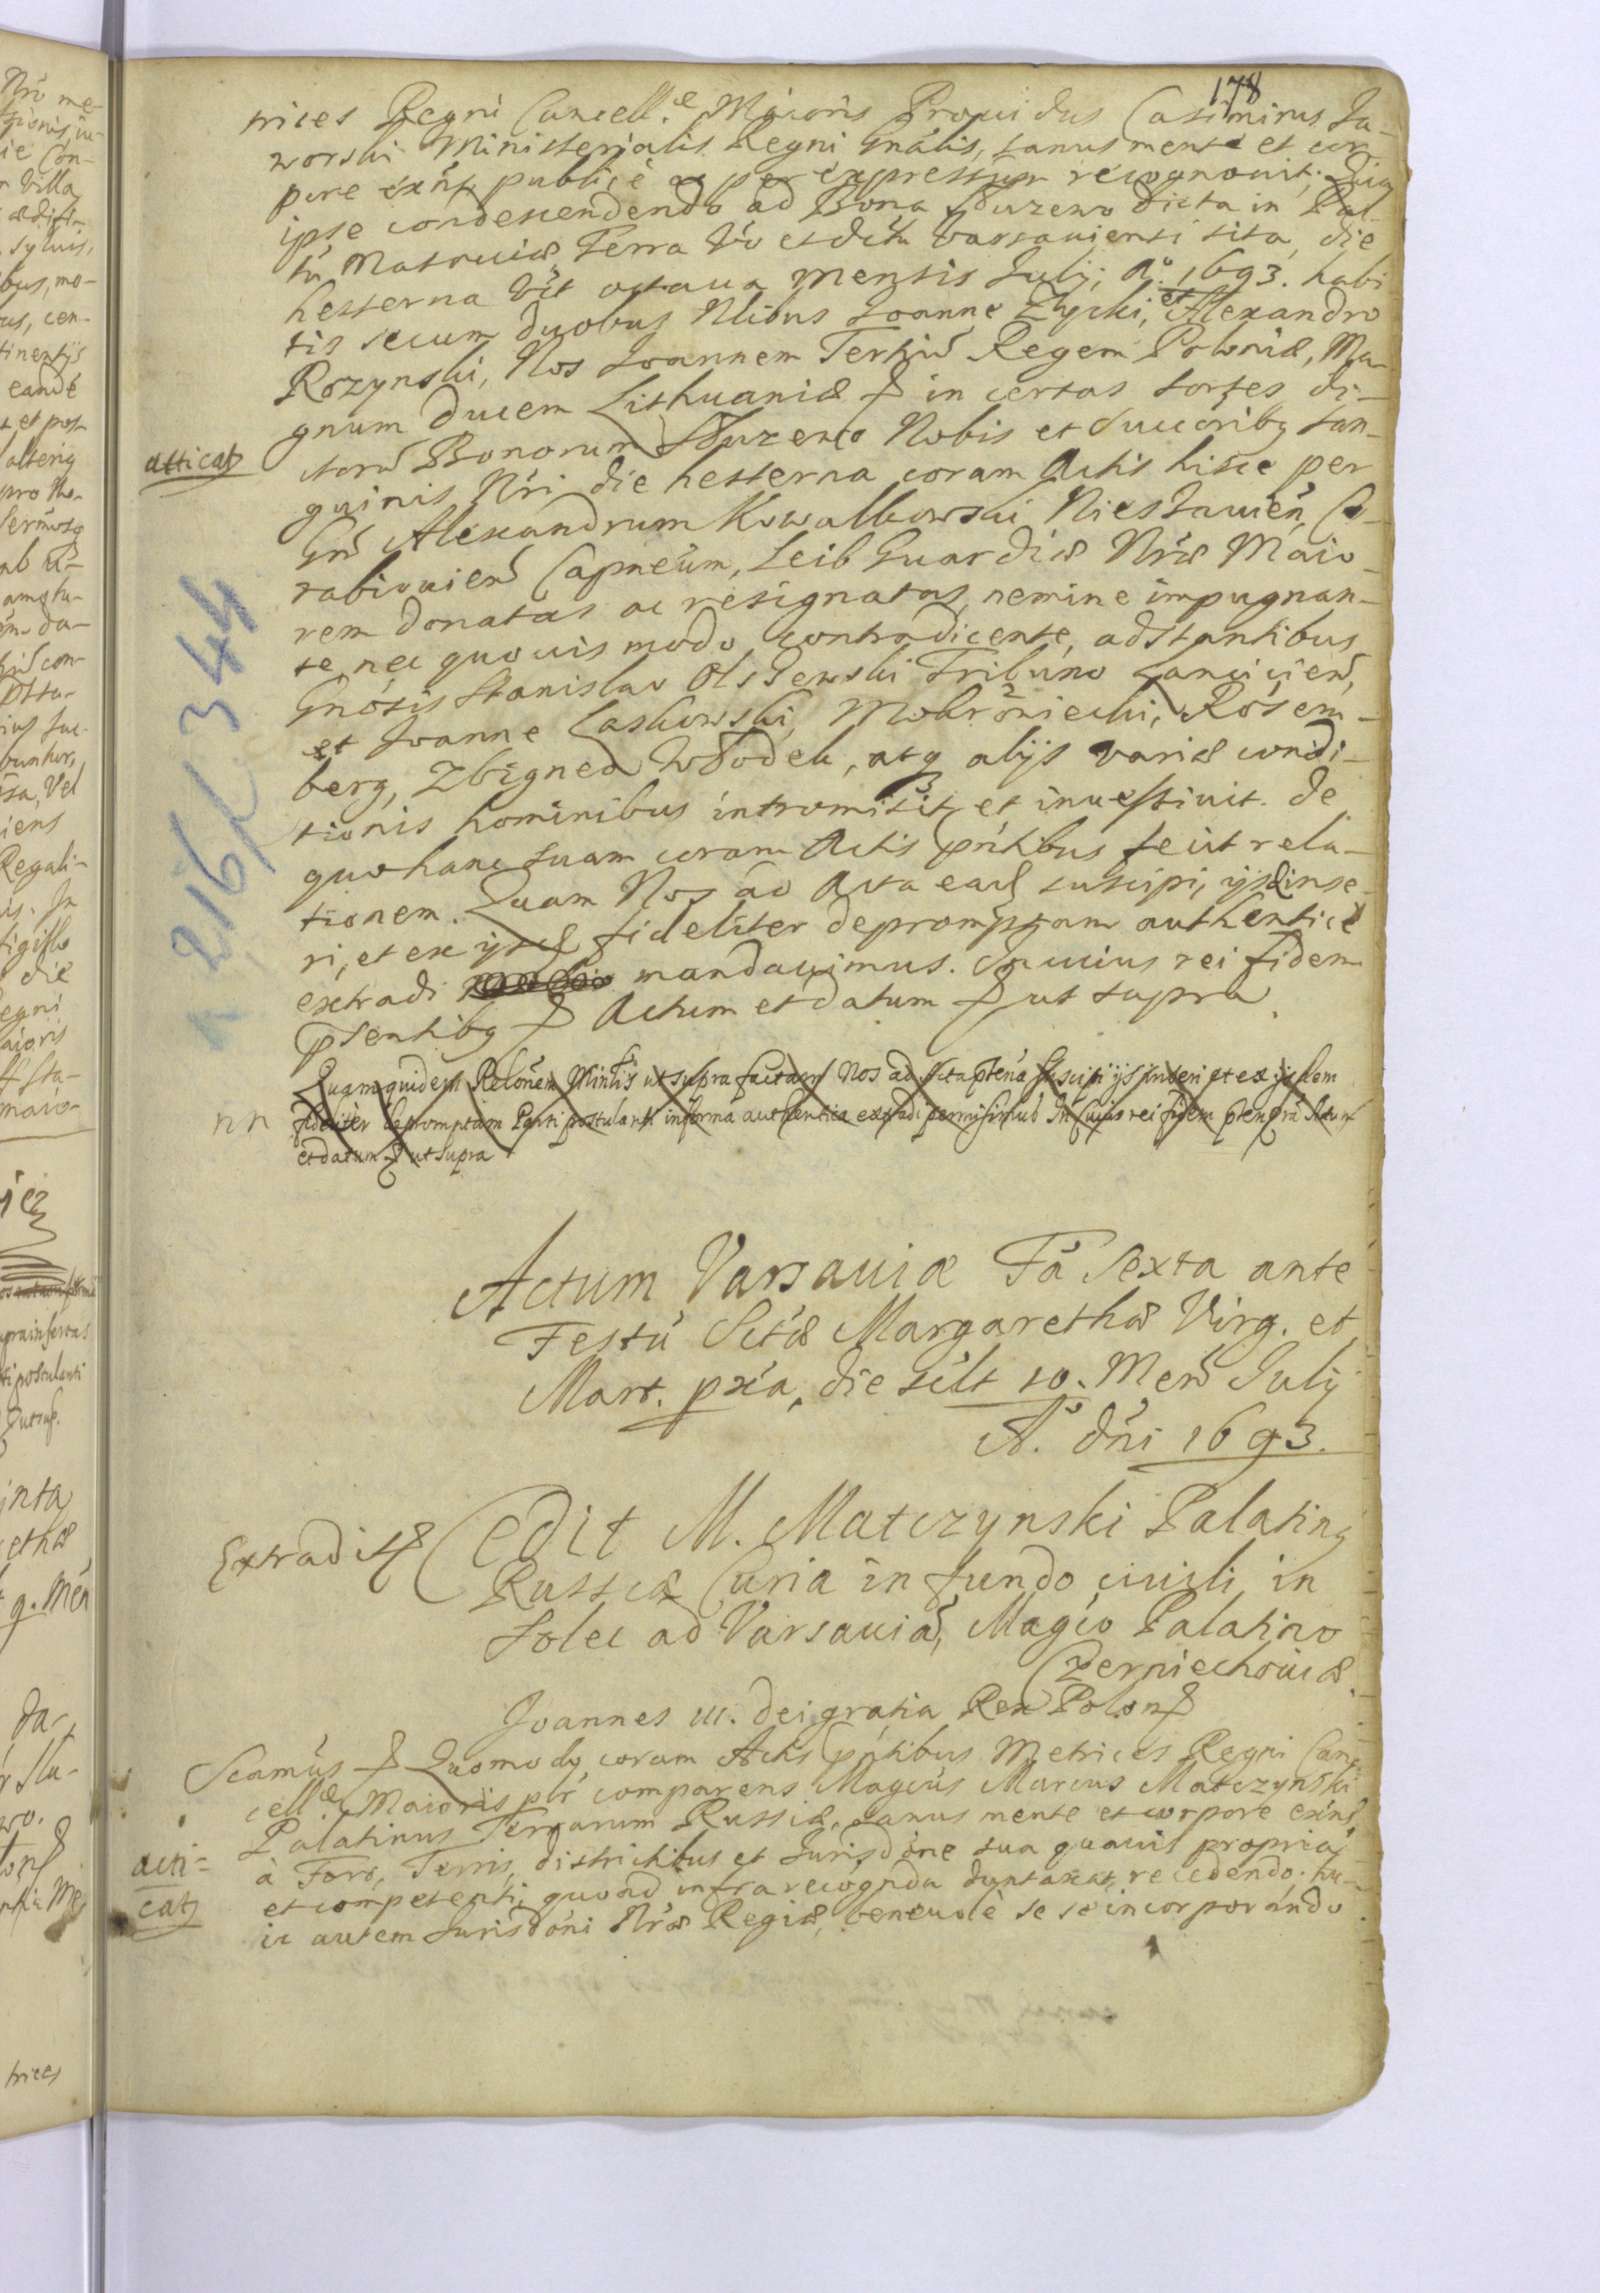 178
trices Regni Cancell.æ Maioris Prouidus Casimirus Ja-
worski Ministerialis Regni Gnális, sanus mente et cor-
pore exńs, publicè ac per expressum recognouit, Quia
ipse condescendendo ad Bona Służewo dicta in Pal-
tu Masouiæ Terra Vo et dictu Varsauiensi sita, die
hesterna Vit octaua mensis Julij, Aº. 1693. habi
tis secum duobus Nlibus Joanne Złycki, et Alexandro
Rozynski, Nos Joannem Tertiu Regem Poloniæ, Ma-
gnum ducem Lithuaniæ in certas sortes di-
ctoru Bonorum Służewo Nobis et succoribq san-
guinis Nri die hesterna coram Actis hisce per
Gnu Alexandrum Kowalkowski Nieszauien, Co-
rabiouien Capneum, Leib Guardiæ Nræ Maio-
rem donatas ac resignatas, nemine impugnan-
te, nec quouis modo contradicente, adstantibus
Gnosis Stanislao Olszewski Tribuno Lancicien,
et Joanne Laskowski, Mokroniecki, Rosem-
berg, Zbigneo Włodek, atq alijs variæ condi-
tionis hominibus intromisit et inuestiuit. de
quo hanc suam coram Actis pntibus fecit rela-
tionem. Quam Nos ad Acta ead suscipi, ijsd inse-
ri, et ex ijsd fideliter depromptam authenticè
extradi mandauimus. In cuius rei fidem
psentibq Actum et datum ut supra.
Quam quidem Relonem Mintis ut supra factam Nos ad Acta ptena suscipi ijs inseri et ex ijsdem
nn fideliter depromptam Parti postulanti in forma authentica extradi permisimus In cuius rei fidem pten Actum
et datum ut supra
atticatq
1 216/344
Actum Varsauiæ Fa Sexta ante
Festu Sctæ Margarethæ Virg. et
Mart. pxia, die silt 10. Men Julij
Aº. dni 1693.
Extradit
Cedit M. Matczynski Palatinq
Russiæ Curia in fundo ciuili in
Solec ad Varsauia, Magco Palatino
Czerniechouiæ.
Joannes III. dei gratia Rex Polon
Scamus Quomodo coram Actis pntibus Metrices Regni Can-
cellæ Maioris pér comparens Magcus Marcus Matczynski
Palatinus Terrarum Russiæ, sanus mente et corpore exns,
à Foro, Terris, districtibus et Jurisdone sua quauis propria
et competenti, quoad infra recognda duntaxat recedendo, hu-
ic autem Jurisdoni Nræ Regiæ, beneuolè se se incorporándo
acti-
catq